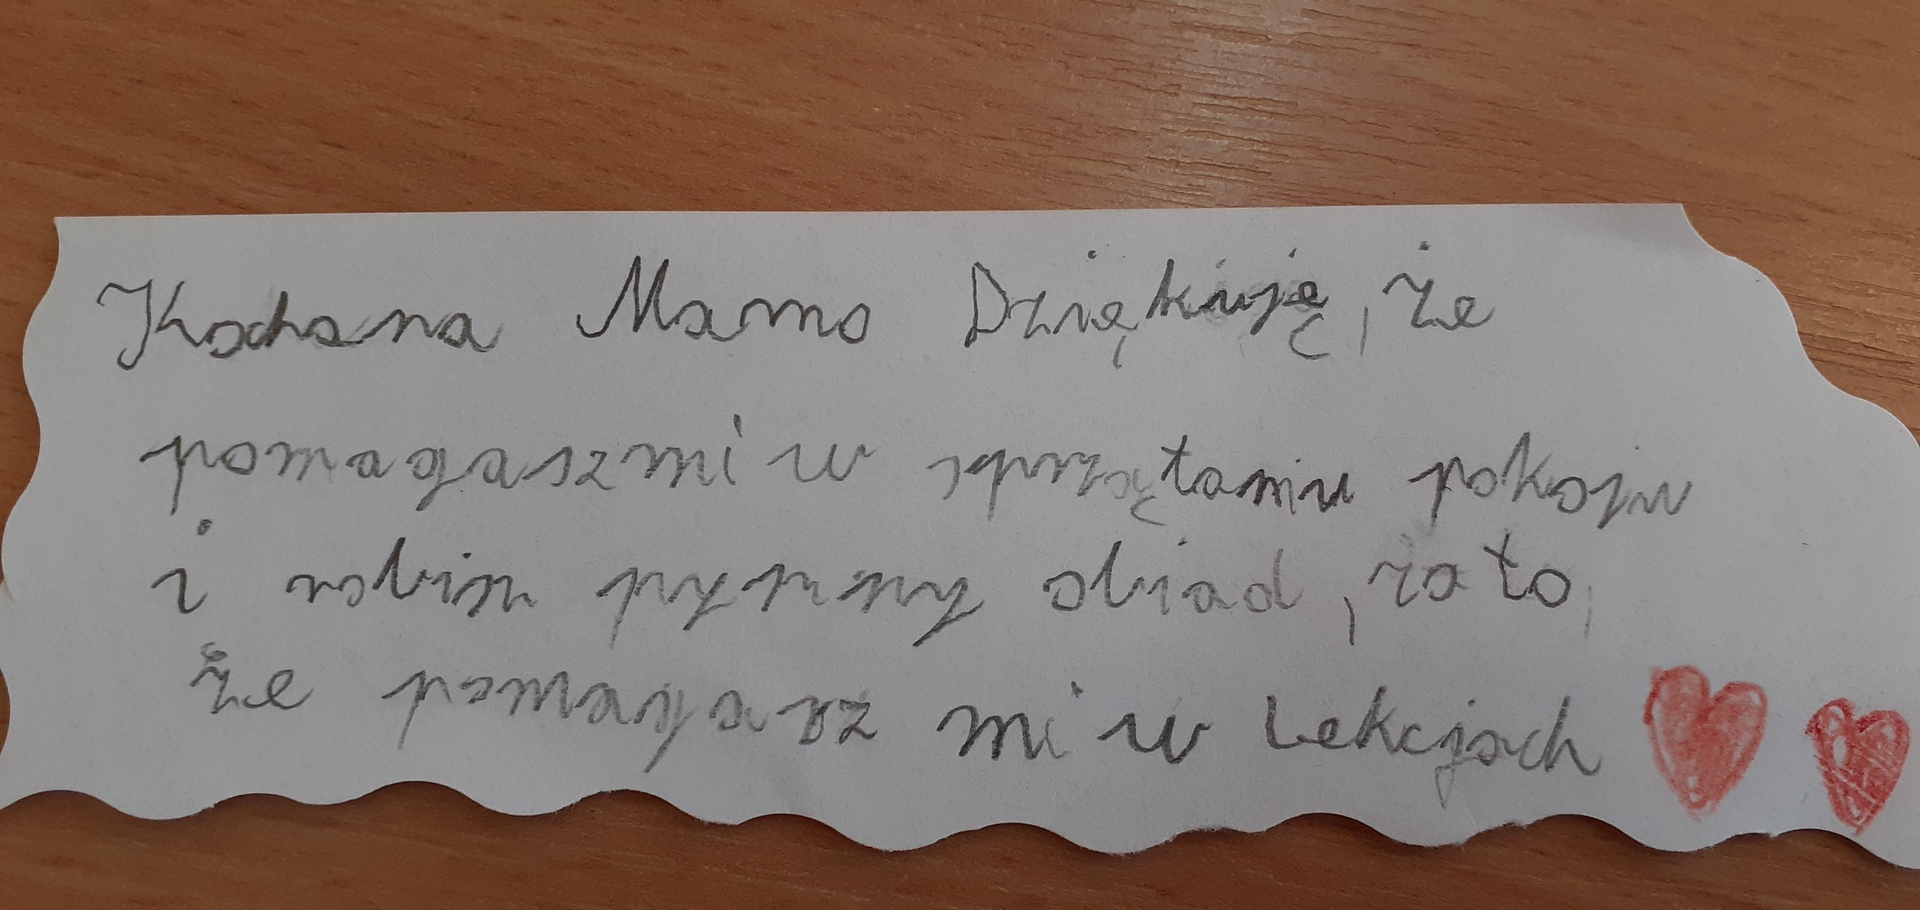 Kochana Mamo Dziękuję, że
pomagasz mi w sprzątaniu pokoju
i robisz pyszny obiad, za to,
że pomagasz mi w Lekcjach